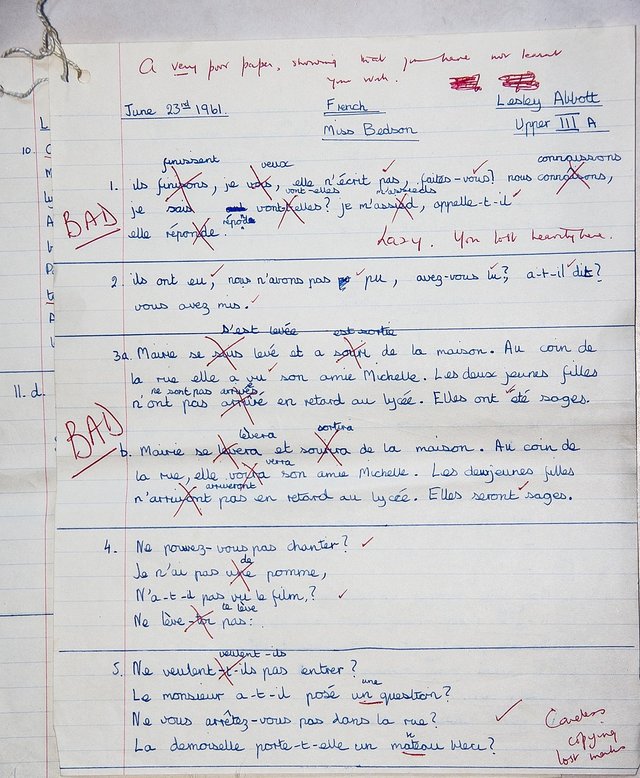 A very poor paper, showing that you have not learnt
your work.
June 23rd 1961. French Lesley Abbott
Miss Bedson Upper III A
finissent veux connaissons
1. ils finissons, je vois, elle n'écrit pas, faites-vous? nous connaisons,
vont-elles m'assieds
BAD je sais vont-t-elles? je m'assied, appelle-t-il
répond
elle réponde.
Lazy. You lost heavily here.
2. ils ont eu, nous n'avons pas pu, avez-vous lu?, a-t-il dit?
vous avez mis.
s'est levée est sortie
3a. Marie se suis levé et a sorti de la maison. Au coin de
la rue elle a vu son amie Michelle. Les deux jeunes filles
ne sont pas arrivés
n'ont pas arrivé en retard au lycée. Elles ont été sages.
BAD
lèvera sortira
b. Mairie se levera et sourira de la maison. Au coin de
verra
la rue, elle voira son amie Michelle. Les deux jeunes filles
arriveront
n'arrivont pas en retard au lycéé. Elles seront sages.
4. Ne pouvez-vous pas chanter?
de
Je n'ai pas une pomme,
N'a-t-il pas vu le film,?
te lève
Ne lève-toi pas:
veulent-ils
5. Ne veulent-t-ils pas entrer?
une
Le monsieur a-t-il posé un question?
Ne vous arrêtez-vous pas dans la rue?
La demoiselle porte-t-elle un mateau bleu?
Careless
copying
lost marks
10.
11. d.